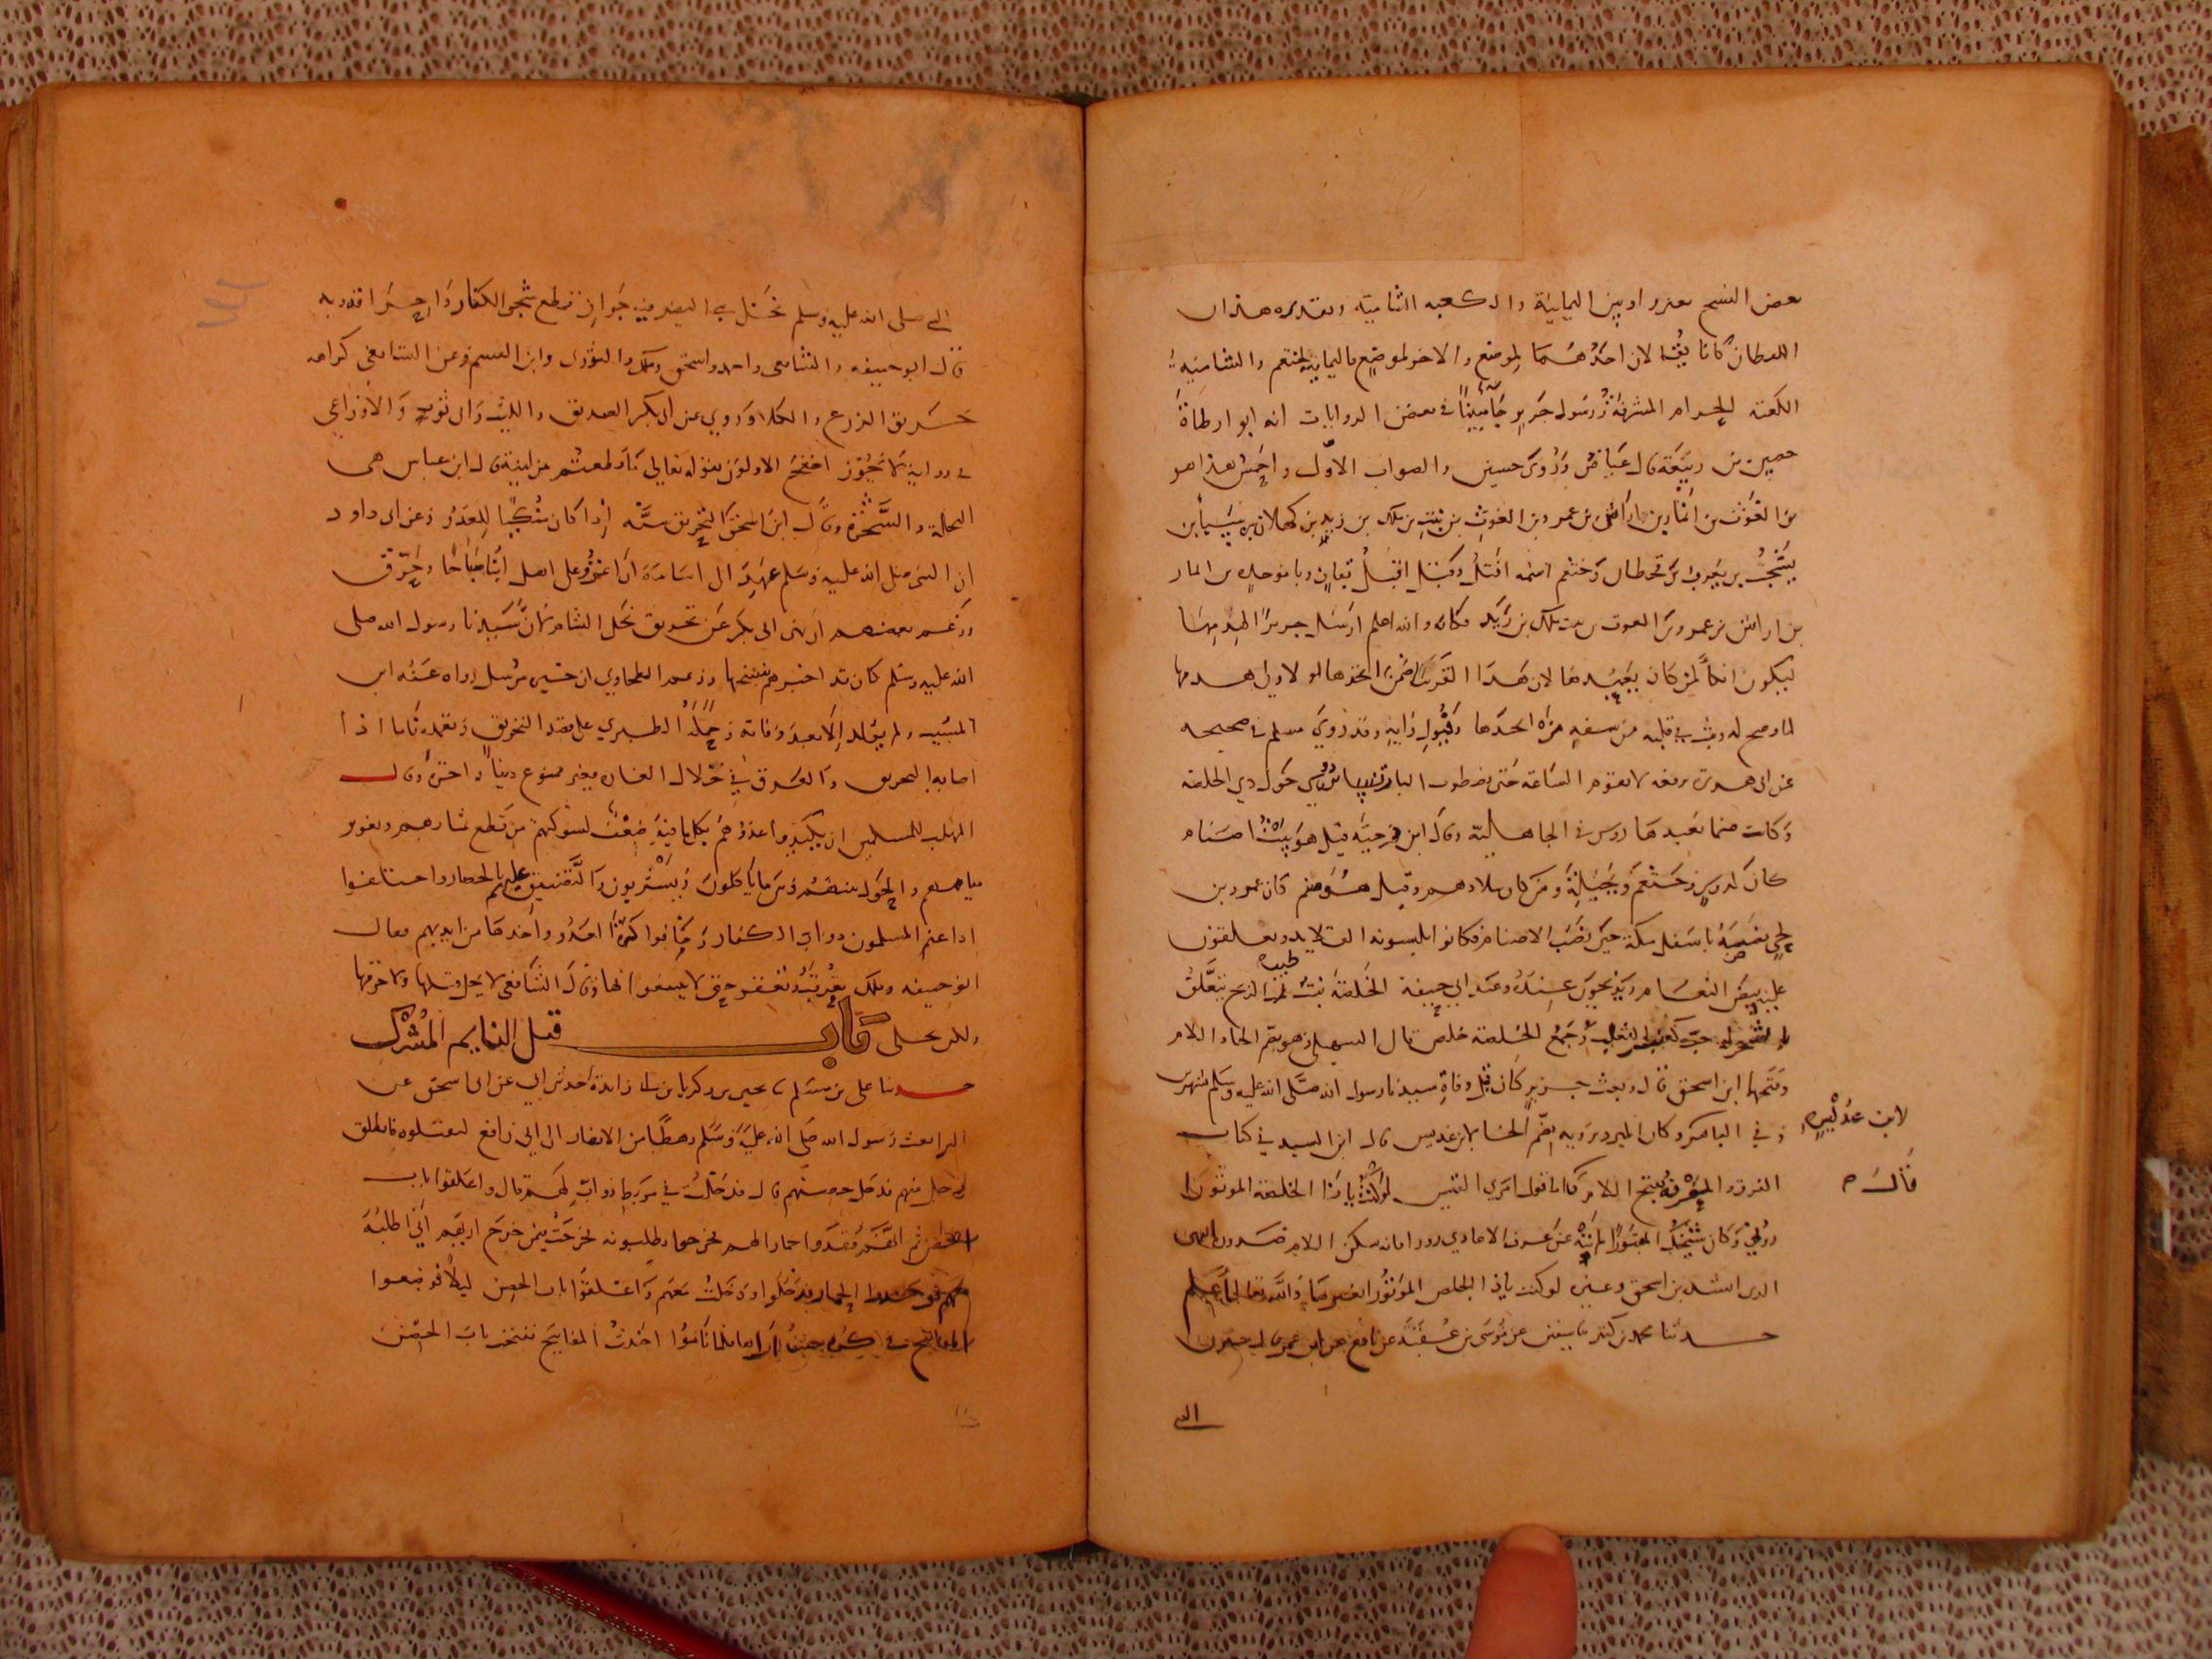 بعض النسخ بغير واو بين اليمانية والكعبة الشامية وتقديره هذان
اللفظان كانا يقالان احدهما لموضع والاخر لموضع فاليمانية لخثعم والشامية
الكعبة الحرام المشرفة ورسول جرير جاء مبينا في بعض الروايات انه ابو ارطاة
حصين بن ربيعة قال عياض وروي حسين والصواب الاول واحمس هذا هو
من الغوث بن انمار بن اراش بن عمرو بن الغوث بن نبت بن ملك بن زيد بن كهلان بن سبا بن
يشجب بن يعرب بن قحطان وخثعم اسمه افتل وقيل اقيل
بن اراش بن عمرو بن الغوث بن نبت بن ملك بن زيد فكانه والله اعلم ارسل جريرا اليهدمها
ليكون انكأ لمن كان يعبدها لان هذا القرن ممن اتخذها لولا ولي هدمها
لما وضح له وثبت في قلبه من سفه من اتخذها وقبول رايه وقد روي مسلم في صحيحه
عن ابي هريرة يرفعه لا تقوم الساعة حتى تضطرب اليات نساء دوس حول ذي الخلصة
وكانت صنما تعبدها دوس في الجاهلية وقال ابن دحية قيل هو بيت اصنام
كان لدوس وخثعم وبجيلة ومن كان ببلادهم وقيل هو صنم كان عمرو بن
لحي نصبه باسفل مكة حين نصب الاصنام فكانوا يلبسونه القلايد ويعلقون
عليه بيض النعام ويذبحون عنده وعند ابي حنيفة الخلصة نبت طيب الريح يتعلق
بالشجر له حب كعنب الثعلب وجمع الخلصة خلص قال السهيلي هو بضم الخاء واللام
وفتحهما ابن اسحق قال وبعث جرير كان قبل وفاة سيدنا رسول الله صلى الله عليه وسلم بشهرين
وفي الباهر وكان المبرد يرويه بضم الخاء لابن عديس قال ابن السيد في كتاب
لابن عديس
الفرق والمعرفة بفتح اللام كما في قول امرئ القيس لو كنت يا ذا الخلصة الموتورا
قال م
دوني وكان شيخك المقبورا لم تنه عن
الذي انشده ابن اسحق وغيره لو كنت يا ذا الخلص الموتورا والله تعالى اعلم
حدثنا محمد بن كثير نا سفين عن موسى بن عقبة عن نافع عن ابن عمر قال حرق
النبي
النبي صلى الله عليه وسلم نخل بني النضير فيه جواز قطع شجر الكفار واحراقه وبه
قال ابو حنيفة والشافعي واحمد واسحق وملك والثوري وابن القسم وعن الشافعي كراهة
حريق الزرع والكلا وروي عن ابي بكر الصديق والليث وابي ثور والاوزاعي
في رواية لا يجوز احتج الاولون بقوله تعالى ما قطعتم من لينة قال ابن عباس هي
النخلة والشجرة وقال ابن اسحق التحريق سنة اذا كان انكى للعدو وعن ابي داود
ان النبي صلى الله عليه وسلم عهد الى اسامة ان اغزو على اهل ابنا صباحا وحرق
وزعم بعضهم ان نهي ابي بكر عن تحريق نخل الشام لان سيدنا رسول الله صلى
الله عليه وسلم كان قد اخبرهم بفتحها وزعم الطحاوي ان خبر مرسل رواه عنه ابن
المسيب ولم يولد الا بعد وفاته وحمله الطبري على قصد التحريق وتعمده فاما اذا
اصابه التحريق والغرق في خلال الغارة فغير ممنوع ديننا واحتج وقال
المهلب للمسلمين ان يكيدوا عدوهم بكل ما فيه ضعف لشوكتهم من قطع ثمارهم وتغوير
مياههم والحول بينهم وبين ما ياكلون ويشربون والتضييق عليهم بالحصار واختلفوا
اذا غنم المسلمون دواب الكفار وخافوا كرة العدو واخذها من ايديهم فقال
ابو حنيفة وملك تعرقب وتعقر حتى لا ينتفعوا بها وقال الشافعي لا يحل قتلها ولا عقرها
ولكن تخلى باب قتل النايم المشرك
حدثنا على بن مسلم نا يحيى بن زكريا بن ابي زايدة حدثني ابي عن ابي اسحق عن
البرا بعث رسول الله صلى الله عليه وسلم رهطا من الانصار الى ابي رافع ليقتلوه فانطلق
رجل منهم فدخل حصنهم قال فدخلت في مربط دواب لهم قال واغلقوا باب
الحصن ثم انهم فقدوا حمارا لهم فخرجوا يطلبونه فخرجت فيمن خرج اريهم اني اطلبه
معهم فوجدوا الحمار فدخلوا ودخلت معهم واغلقوا باب الحصن ليلا فوضعوا
المفاتيح في كوة حيث اراها فلما ناموا اخذت المفاتيح ففتحت باب الحصن